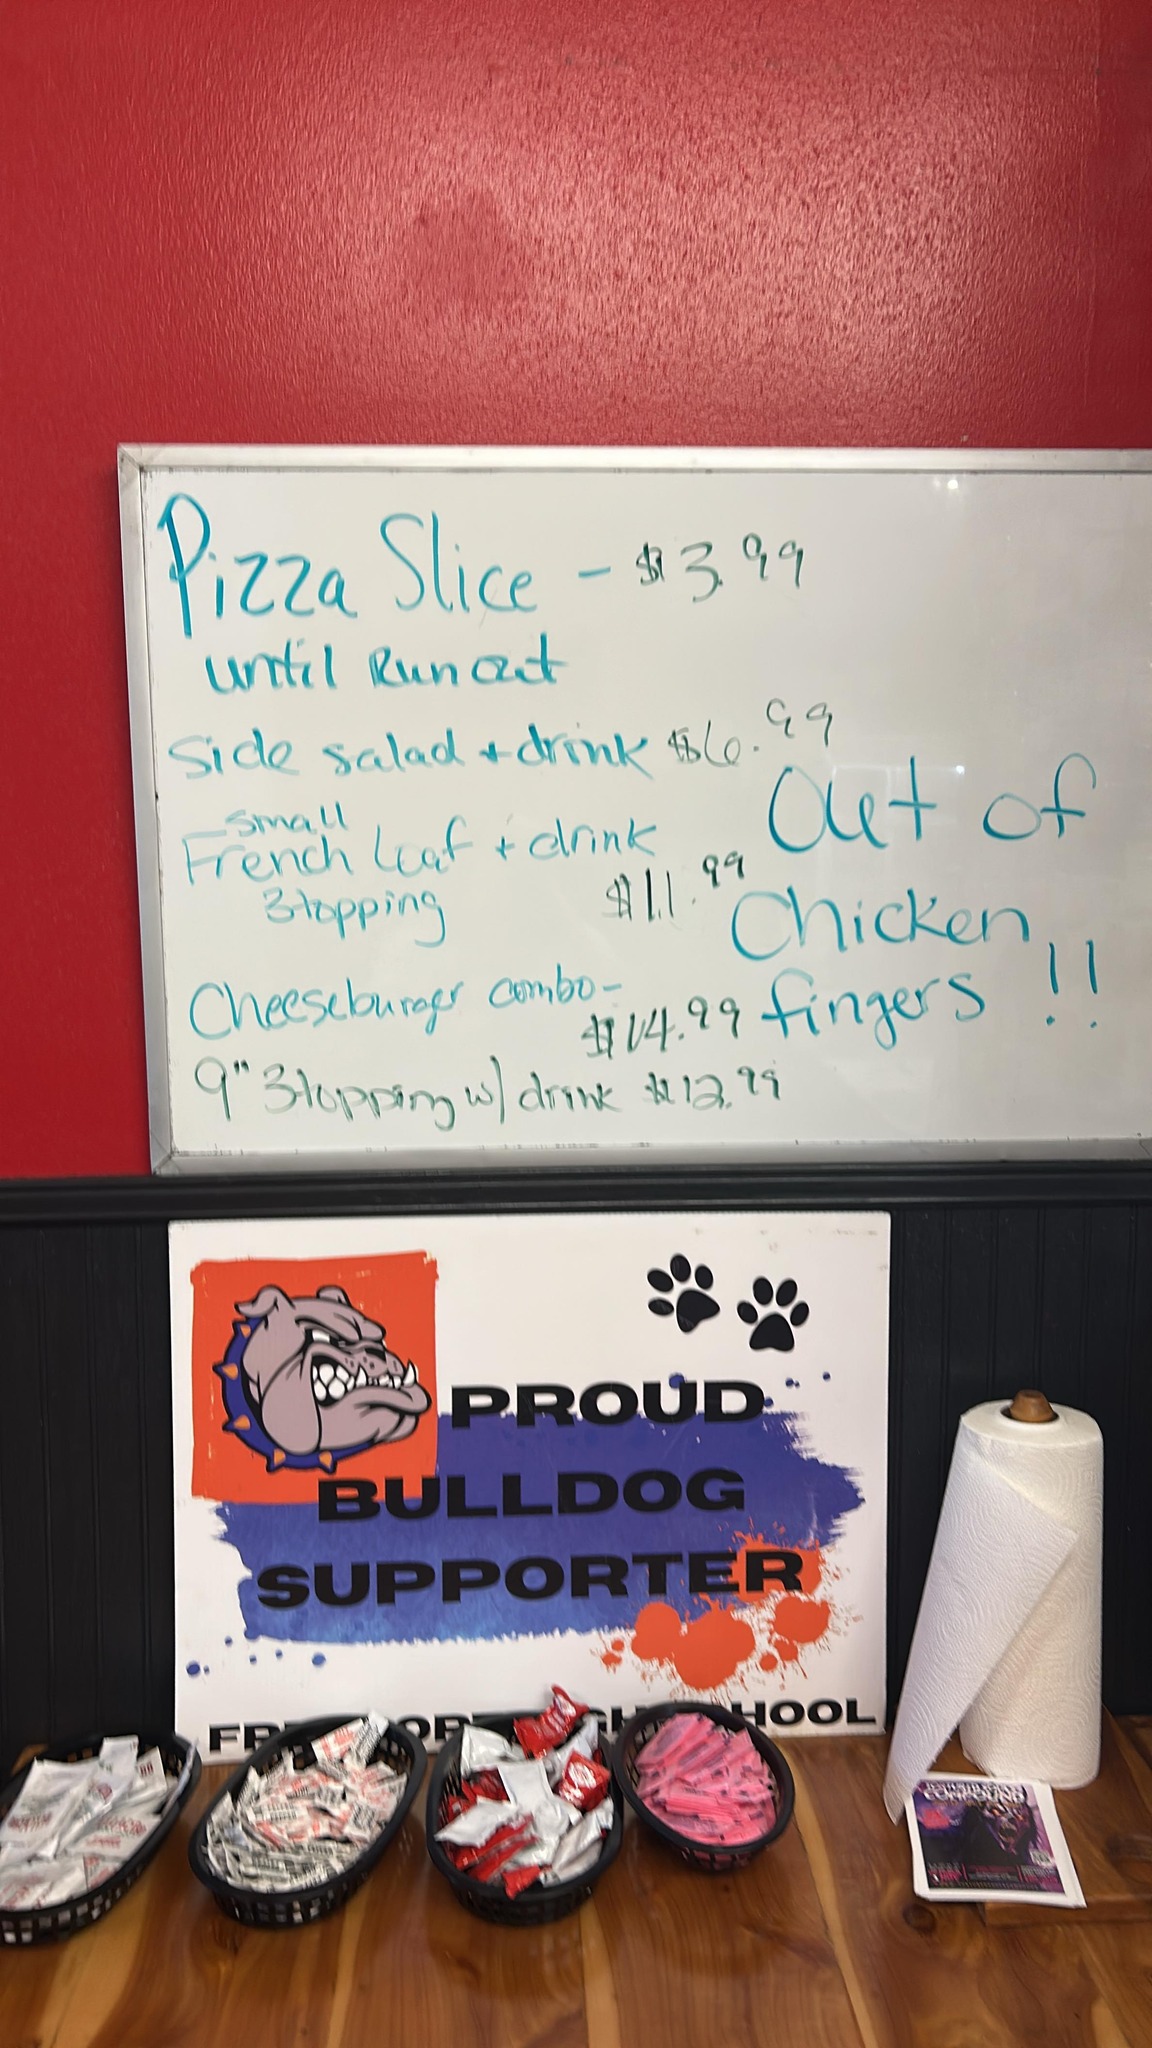 Pizza Slice - $3.99
until Run out
Side salad + drink $6.99
small
French Loaf + drink
3 topping $11.99
Cheeseburger combo-
$14.99
9" 3 topping w/ drink $12.99
Out of
Chicken
fingers !!
PROUD
BULLDOG
SUPPORTER
HOOL
COMPOUND